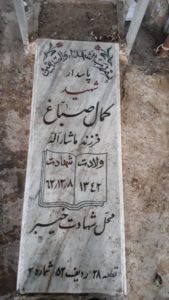 پاسدار
شهید
کمال صباغ
فرزند ماشاءاله
ولادت شهادت
۱۳۴۲ ۶۲/۱۲/۸
محل شهادت خیبر
قطعه ۲۸ ردیف ۵۲ شماره ۲